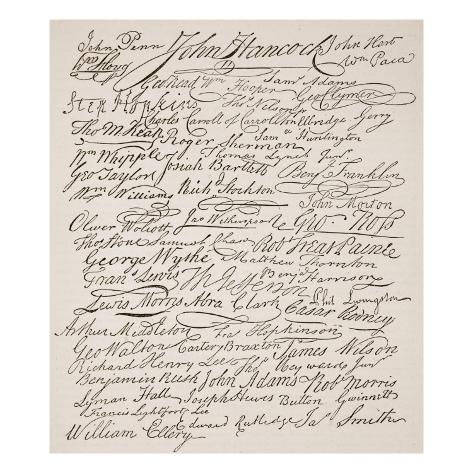 John Penn John Hancock John Hart
Wm Floyd Wm Paca
Geo Read Wm Hooper Saml Adams
Geo Clymer
Step Hopkins Thos Nelson jr
Charles Carroll of Carrollton Elbridge Gerry
Tho M:Kean Roger Sherman Saml Huntington
Wm Whipple Thomas Lynch Junr
Josiah Bartlett Benj Franklin
Geo Taylor
Wm Williams Richd Stockton
John Morton
Oliver Wolcott Jno Witherspoon Geo Ross
Thos Stone Samuel Chase Robt Treat Paine
George Wythe Matthew Thornton
Frans Lewis Th Jefferson Benj Harrison
Lewis Morris Abra Clark Phil Livingston
Casar Rodney
Arthur Middleton Fras Hopkinson
Geo Walton Carter Braxton James Wilson
Richard Henry Lee Thos Heyward Junr
Benjamin Rush John Adams Robt Morris
Lyman Hall Joseph Hewes Button Gwinnett
Francis Lightfoot Lee
William Ellery Edward Rutledge Jas Smith